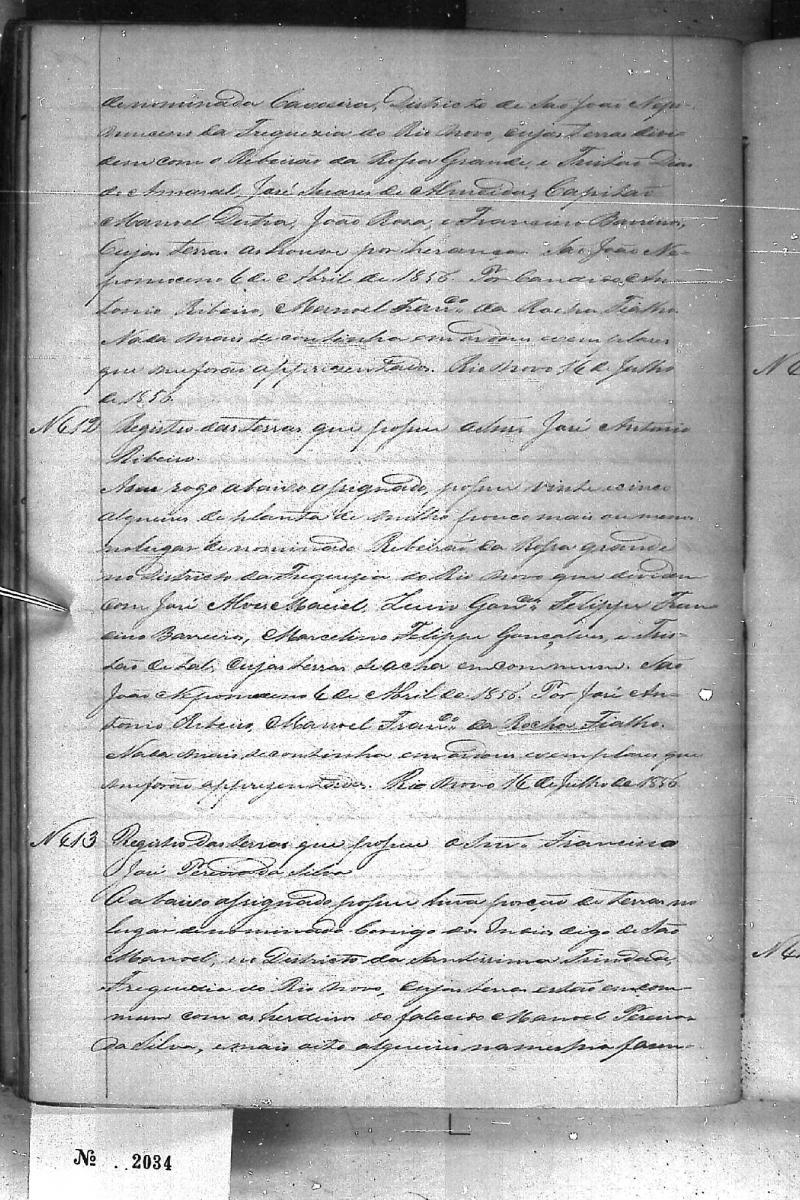 denominada Cavoeira, Districto de São João Nepo-
muceno da Freguezia do Rio Novo, cujas terras divi
dem com o Ribeirão da Rossa Grande, e Tristão Dias
do Amaral, José Soares de Almeida, Capitão
Manoel Dutra, João Rosa, e Francisco Barreiro,
Cujas terras as houve por herança. São João Ne-
pomoceno 6 de Abril de 1856. Por Candido An-
tonio Ribeiro, Manoel Franco. da Rocha Fialho
Nada mais se continha em ambos exemplares
que me forão appresentados. Rio Novo 16 de Julho
de 1856
N 612 Registro das terras que possue José Antonio
Ribeiro.
abaixo assignado, possue vinte e cinco
alqueires de planta de milho pouco mais ou menos
no lugar denominado Ribeirão da Rossa grande
no Districto da Freguezia do Rio Novo que dividem
Com José Alves Maciel, Lucio Gonces. Felippe Fran
cisco Barreiro, Marcelino Felippe Gonçalves, e Tris-
tão de tal, Cujas terras se acha em commum. São
João Nepomoceno 6 de Abril de 1856. Por José An-
tonio Ribeiro, Manoel Franco. da Rocha Fialho.
Nada mais se continha em ambos exemplares que
me forão appresentados. Rio Novo 16 de Julho de 1856
N 613 Registro das terras que possue o Snr. Francisco
José Pereira da Silva
O abaixo assignado possue huã porção de terras no
lugar denominado Corrigo dos Indios digo de São
Manoel, no Districto da Santissima Trindade,
Freguezia do Rio Novo, Cujas terras estão em com-
mum com os herdeiros do falecido Manoel Pereira
da Silva, e mais oito alqueires na mesma fazen-
Nº 2034